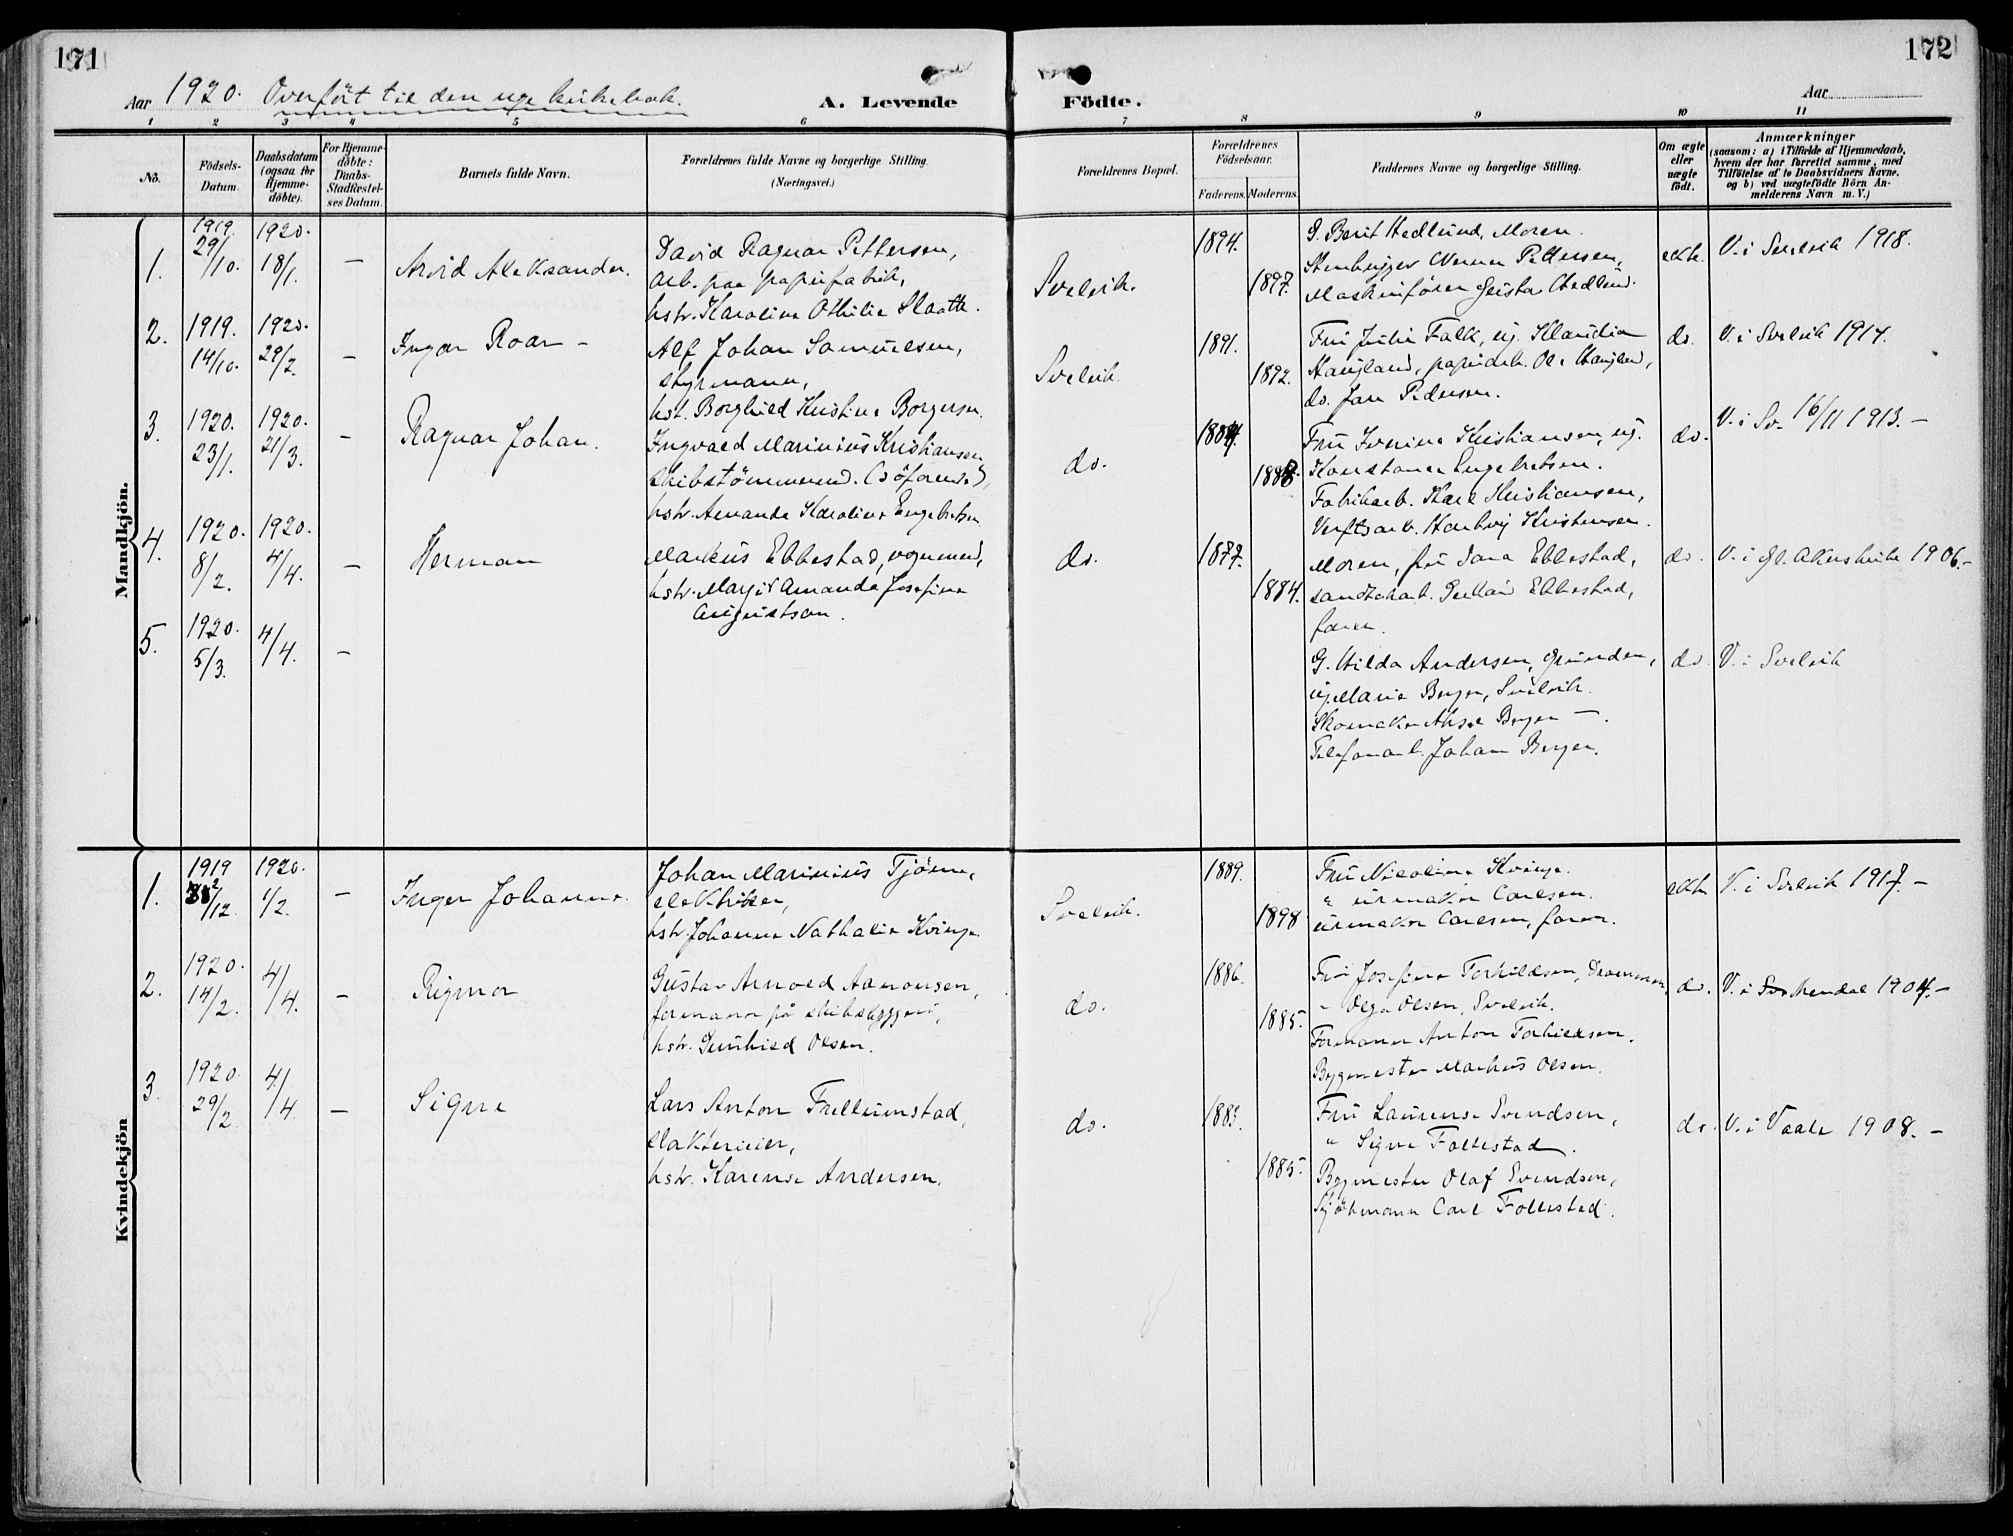 171
172
Aar 1920. Overført til den nye kirkebok.
A. Levende
Födte.
Aar
1 2 3 4 5 6 7 8 9 10 11
Nō.
Födsels-
Datum.
Daabsdatum
(ogsaa for
Hjemme-
döbte).
For Hjemme-
döbte:
Daabs-
Stadfæstel-
ses Datum.
Barnets fulde Navn.
Forældrenes fulde Navne og borgerlige Stilling.
(Næringsvei.)
Forældrenes Bopæl.
Forældrenes
Födselsaar.
Faderens. Moderens.
Faddernes Navne og borgerlige Stilling.
Om ægte
eller
uægte
födt.
Anmærkninger
(saasom: a) i Tilfælde af Hjemmedaab,
hvem der har forrettet samme, med
Tilföielse af to Daabsvidners Navne.
og b) ved uægtefödte Börn An-
melderens Navn m. V.)
Mandkjön.
1.
1919.
29/10.
1920.
18/1.
—
Arvid Aleksander.
David Ragnar Pettersen,
arb. paa papirfabrik,
hstr. Karoline Othilie Slaatte.
Svelvik.
1894.
1897.
G. Berit Hedlund, Moren.
Stenhugger Werner Pettersen,
Maskinfører Gustav Hedlund.
ekte.
V. i Svelvik 1918.
2.
1919.
14/10.
1920.
29/2.
—
Ingar Roar —
Alf Johan Samuelsen,
styrmann,
hst. Borghild Kristine Borgersen.
Svelvik.
1891.
1892.
Fru Julie Falk, ug. Klaudia
Haugland, papirarb. Ole Haugland,
do. Jan Pedersen.
do.
V. i Svelvik 1917.
3.
1920.
23/1.
1920.
21/3.
—
Ragnar Johan.
Ingvald Marinius Kristiansen
skibstømmermd. (søforende),
hstr. Amanda Karoline Engebretsen
do.
1884.
1888.
Fru Iverine Kristiansen, ug.
Konstance Engebretsen.
Fabrikarb. Karl Kristiansen,
Verftsarb. Hartvig Kristensen.
do.
V. i Sv. 16/11 1913. —
4.
1920.
8/2.
1920.
4/4.
—
Herman
Markus Ebbestad, vognmand,
hstr. Margit Amanda Josefine
Augustson.
do.
1877.
1884.
Moren, fru Jana Ebbestad,
Ebbestad,
faren.
do.
V. i Gl. Akers kirke 1906. —
5.
1920.
5/3.
4/4.
—
G. Hilda Andersen, Grunden,
ug. Marie Berger, Svelvik.
Skomaker Berger —.
Telefonarb. Johan Berger.
do.
V. i Svelvik
Kvindekjön
1.
1919
/12.
1920.
1/2.
—
Inger Johanne.
Johan Marinius Tjøme,
elektriker,
hstr. Johanne Nathalie Kvinge.
Svelvik.
1889.
1898
Fru Nicoline Kvinge.
" urmaker Carlsen.
urmaker Carlsen, faren.
ekte
V. i Svelvik 1917. —
2.
1920.
14/2.
4/4.
—
Rigmor
Gustav Arnold Aamonsen,
formann på skibsbyggeri,
hstr. Gunhild Olsen.
do.
1886.
1885.
Fru Josefine Torkildsen, Drammen,
" Olga Olsen, Svelvik.
Formann Anton Torkildsen.
Bygmester Markus Olsen.
do.
V. i Sørkendal 1904. —
3.
1920.
29/2.
4/4.
—
Signe
Lars Anton Frellumstad,
slakterieier,
hstr. Karense Andersen.
do.
1883.
1885.
Fru Laurense Svendsen,
" Signe Follestad.
Bygmester Olaf Svendsen,
Sjømann Carl Follestad.
do.
V. i Vaale 1908. —